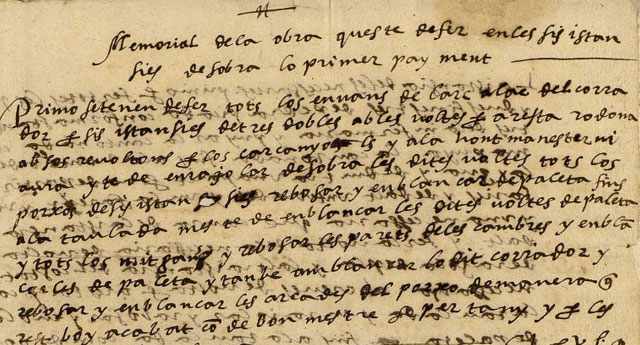 Memorial dela obra queste defer enles sis istan
sies desobra lo primer payment
Primo setenen defer tots los envans de larc alac del corra
dor sis istansies detres dobles ables voltes aresta rodona
absos revoltons los carcanyols y ala hont manester ni
aura y te de enrajolar desobra les dites voltes tots los
porxos desis istansies rebosar y enblancar depaleta fins
ala taulada mes te de enblancar les dites voltes de paleta
y tots los mitgans y rebosar les parets deles cambres y enblan
carles de paleta y tanbe anblancar lo dit corrador y
rebosar y enblancar les arcades del porxo demanera
rest bo y acabat de bon mestre per tot y les